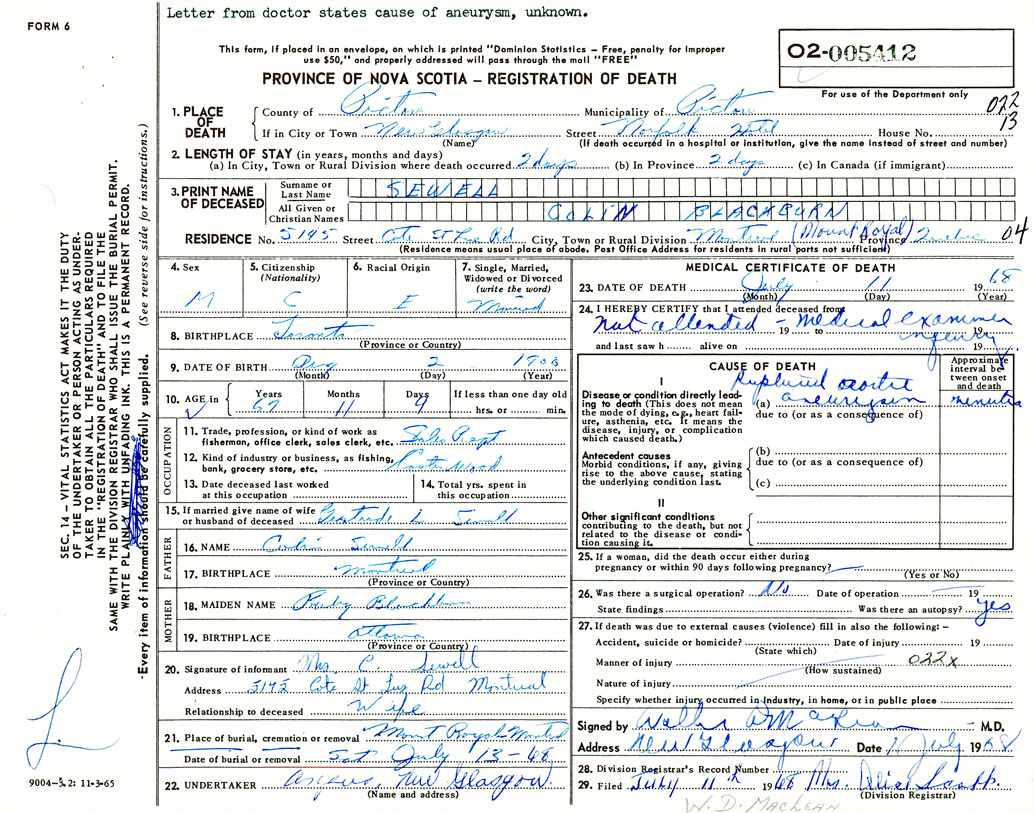 Letter from doctor states cause of aneurysm, unknown.
FORM 6
This form, if placed in an envelope, on which is printed "Dominion Statistics – Free, penalty for improper
use $50," and properly addressed will pass through the mail "FREE"
O2-005412
PROVINCE OF NOVA SCOTIA – REGISTRATION OF DEATH
For use of the Department only
022
13
1. PLACE OF DEATH
County of Pictou Municipality of Pictou
If in City or Town New Glasgow Street Norfolk Hotel House No.
(Name) (If death occurred in a hospital or institution, give the name instead of street and number)
2. LENGTH OF STAY (in years, months and days)
(a) In City, Town or Rural Division where death occurred 2 days (b) In Province 2 days (c) In Canada (if immigrant)
3. PRINT NAME OF DECEASED
Surname or Last Name SEWELL
All Given or Christian Names COLIN BLACKBURN
RESIDENCE No. 5145 Street Cote St Luc Rd City, Town or Rural Division Montreal (Mount Royal) Province Quebec 04
(Residence means usual place of abode. Post Office Address for residents in rural parts not sufficient)
4. Sex M
5. Citizenship (Nationality) C
6. Racial Origin E
7. Single, Married, Widowed or Divorced (write the word) Married
8. BIRTHPLACE Toronto
(Province or Country)
9. DATE OF BIRTH Aug 2 1900
(Month) (Day) (Year)
10. AGE in Years 67 Months 11 Days 9 If less than one day old hrs. or min.
OCCUPATION
11. Trade, profession, or kind of work as
fisherman, office clerk, sales clerk, etc. Sales Rept
12. Kind of industry or business, as fishing,
bank, grocery store, etc. Wood
13. Date deceased last worked
at this occupation
14. Total yrs. spent in
this occupation
15. If married give name of wife
or husband of deceased Gertrude L Sewell
FATHER
16. NAME Colin Sewell
17. BIRTHPLACE Montreal
(Province or Country)
MOTHER
18. MAIDEN NAME Ruby Blackburn
19. BIRTHPLACE Ottawa
(Province or Country)
20. Signature of informant Mrs. C. Sewell
Address 5145 Cote St Luc Rd Montreal
Relationship to deceased Wife
21. Place of burial, cremation or removal Mont Royal Montreal
Date of burial or removal Sat July 13-68
22. UNDERTAKER Angus, New Glasgow.
(Name and address)
MEDICAL CERTIFICATE OF DEATH
23. DATE OF DEATH July 11 1968
(Month) (Day) (Year)
24. I HEREBY CERTIFY that I attended deceased from
not attended - medical examiner
19 to 19
enquiry
and last saw h alive on 19
CAUSE OF DEATH
Approximate interval between onset and death
I
Disease or condition directly leading to death (This does not mean the mode of dying, e.g., heart failure, asthenia, etc. It means the disease, injury, or complication which caused death.)
Ruptured aortic
(a) aneurysm minutes
due to (or as a consequence of)
Antecedent causes
Morbid conditions, if any, giving rise to the above cause, stating the underlying condition last.
(b)
due to (or as a consequence of)
(c)
II
Other significant conditions
contributing to the death, but not related to the disease or condition causing it.
25. If a woman, did the death occur either during
pregnancy or within 90 days following pregnancy?
(Yes or No)
26. Was there a surgical operation? No Date of operation 19
State findings Was there an autopsy? yes
27. If death was due to external causes (violence) fill in also the following: –
Accident, suicide or homicide? Date of injury 19
(State which)
Manner of injury 022x
(How sustained)
Nature of injury
Specify whether injury occurred in industry, in home, or in public place
Signed by – M.D.
Address New Glasgow Date July 1968
28. Division Registrar's Record Number
29. Filed July 11th 1968 Mrs. Alice Scott.
(Division Registrar)
W. D. MacLean
SEC. 14 – VITAL STATISTICS ACT MAKES IT THE DUTY
OF THE UNDERTAKER OR PERSON ACTING AS UNDER-
TAKER TO OBTAIN ALL THE PARTICULARS REQUIRED
IN THE "REGISTRATION OF DEATH" AND TO FILE THE
SAME WITH THE DIVISION REGISTRAR WHO SHALL ISSUE THE BURIAL PERMIT.
WRITE PLAINLY WITH UNFADING INK. THIS IS A PERMANENT RECORD.
Every item of information should be carefully supplied. (See reverse side for instructions.)
9004-5.2: 11-3-65